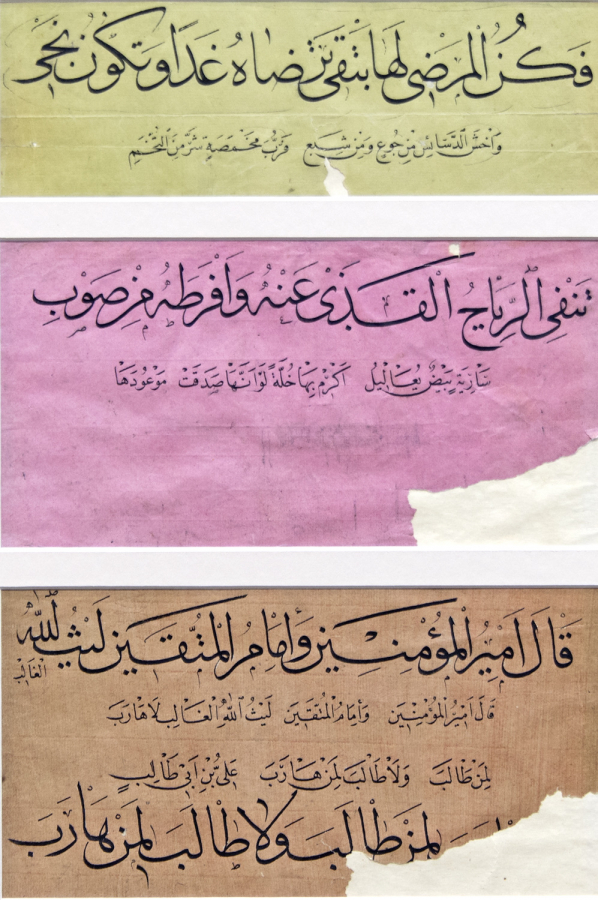 فَكُنِ الْمَرْضِىَّ لَهَا بِتُقًى تَرْضَاهُ غَدًا وَتَكُونُ نَجِى
وَاخْشَ الدَّسَائِسَ مِنْ جُوعٍ وَمِنْ شِبَعٍ فَرُبَّ مَخْمَصَةٍ شَرٌّ مِنَ التُّخَمِ
تَنْفِى الرِّيَاحُ الْقَذٰى عَنْهُ وَاَفْرَطَهُ مِنْ صَوْبِ
سَارِيَةٍ بِيضٌ يَعَالِيلُ اَكْرِمْ بِهَا خُلَّةً لَوْ اَنَّهَا صَدَقَتْ مَوْعُودَهَا
قَالَ اَمِيرُ الْمُؤْمِنِينَ وَاِمَامُ الْمُتَّقِينَ لَيْثُ اللّٰهِ الْغَالِبُ
قَالَ اَمِيرُ الْمُؤْمِنِينَ وَاِمَامُ الْمُتَّقِينَ لَيْثُ اللّٰهِ الْغَالِبُ لَا هَارَبَ
لِمَنْ طَالَبَ وَلَا طَالَبَ لِمَنْ هَارَبَ عَلِىُّ بْنُ اَبِى طَالِبٍ
لِمَنْ طَالَبَ وَلَا طَالَبَ لِمَنْ هَارَبَ